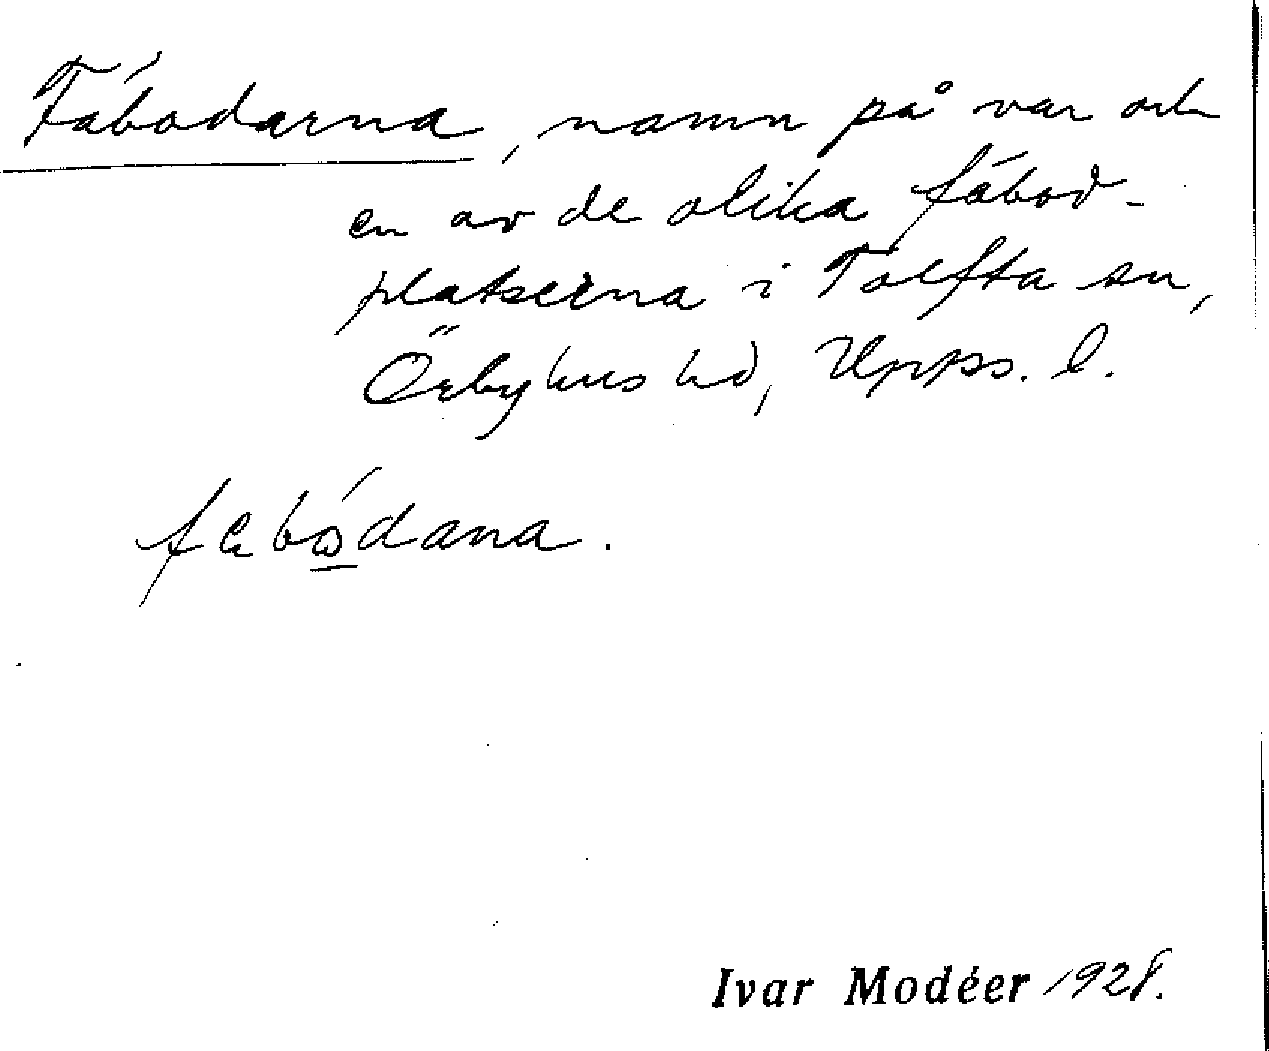 Fäbodarna, namn på var och
en av de olika fäbod-
platserna i Tolfta sn,
Örbyhus hd, Upps. l.
Ivar Modéer 1928.